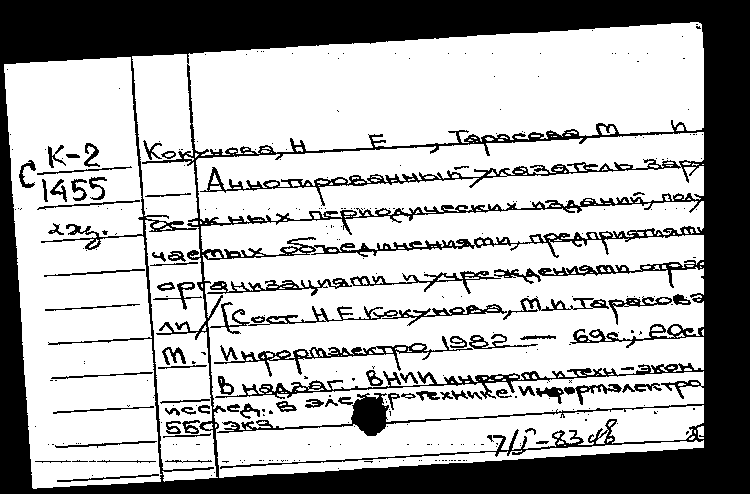 К-2 Кокунова, Н Е , Тарасова, М И.
С 1455 Аннотированный указатель зару
хкц. бежных периодических изданий, полу
чаемых объединениями, предприятиями
организациями и учреждениями отрас
ли / [Сост. Н.Е. Кокунова, М.И. Тарасова
М.: Информэлектро, 1982 — 69с.; 20см
В надзаг: ВНИИ информ. и техн-экон.
исслед. в электротехнике. Информэлектро.
550 экз.
7/I-83